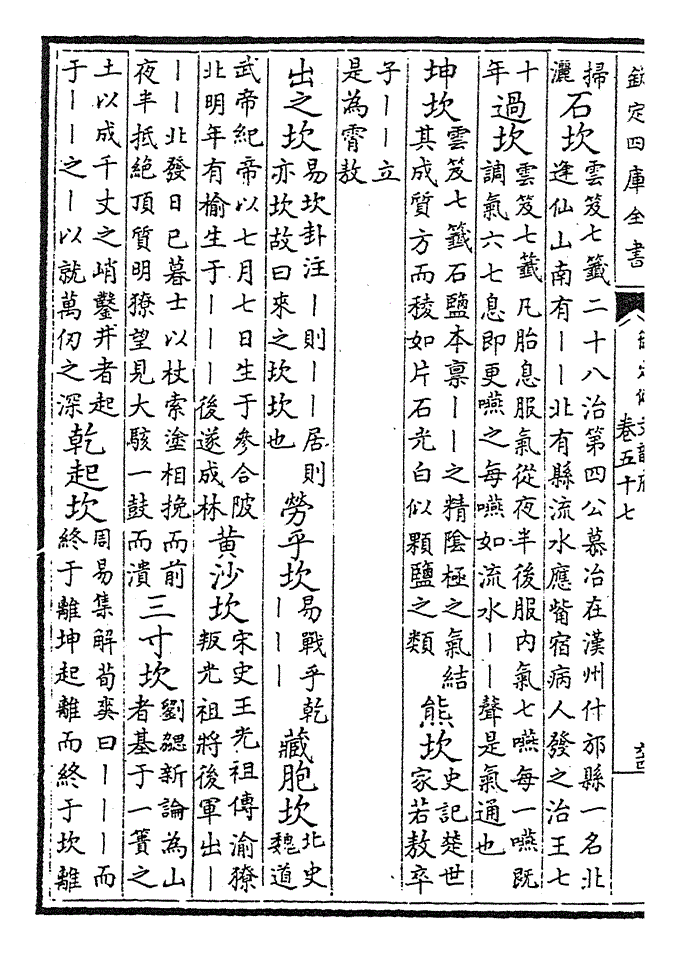 欽定四庫全書
卷五十七
掃
灑
石坎
雲笈七籤二十八治第四公慕治在漢州什邡縣一名北
逢仙山南有丨丨北有縣流水應觜宿病人發之治王七
十
年
過坎
雲笈七籤凡胎息服氣從夜半後服內氣七嚥每一嚥既
調氣六七息即更嚥之每嚥如流水丨丨聲是氣通也
坤坎
雲笈七籤石鹽本稟丨丨之精陰極之氣結
其成質方而稜如片石光白似顆鹽之類
熊坎
史記楚世
家若敖卒
子丨丨立
是為霄敖
出之坎
易坎卦注丨則丨丨居則
亦坎故曰來之坎坎也
勞乎坎
易戰乎乾
丨丨丨
藏胞坎
北史
魏道
武帝紀帝以七月七日生于參合陂
北明年有榆生于丨丨丨後遂成林
黃沙坎
宋史王光祖傳渝獠
叛光祖將後軍出丨
丨丨北發日已暮士以杖索塗相挽而前
夜半抵絕頂質明獠望見大駭一鼓而潰
三寸坎
劉勰新論為山
者基于一簣之
土以成千丈之峭鑿井者起
于丨丨之丨以就萬仞之深
乾起坎
周易集解荀奭曰丨丨丨而
終于離坤起離而終于坎離